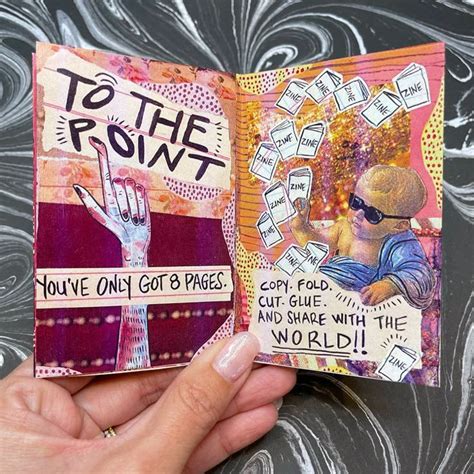 TO THE
POINT
YOU'VE ONLY GOT 8 PAGES.
ZINE
ZINE
ZINE
ZINE
ZINE
ZINE
ZINE
ZINE
ZINE
ZINE
ZINE
ZINE
ZINE
COPY. FOLD.
CUT. GLUE.
AND SHARE WITH THE
WORLD!!
ZINE